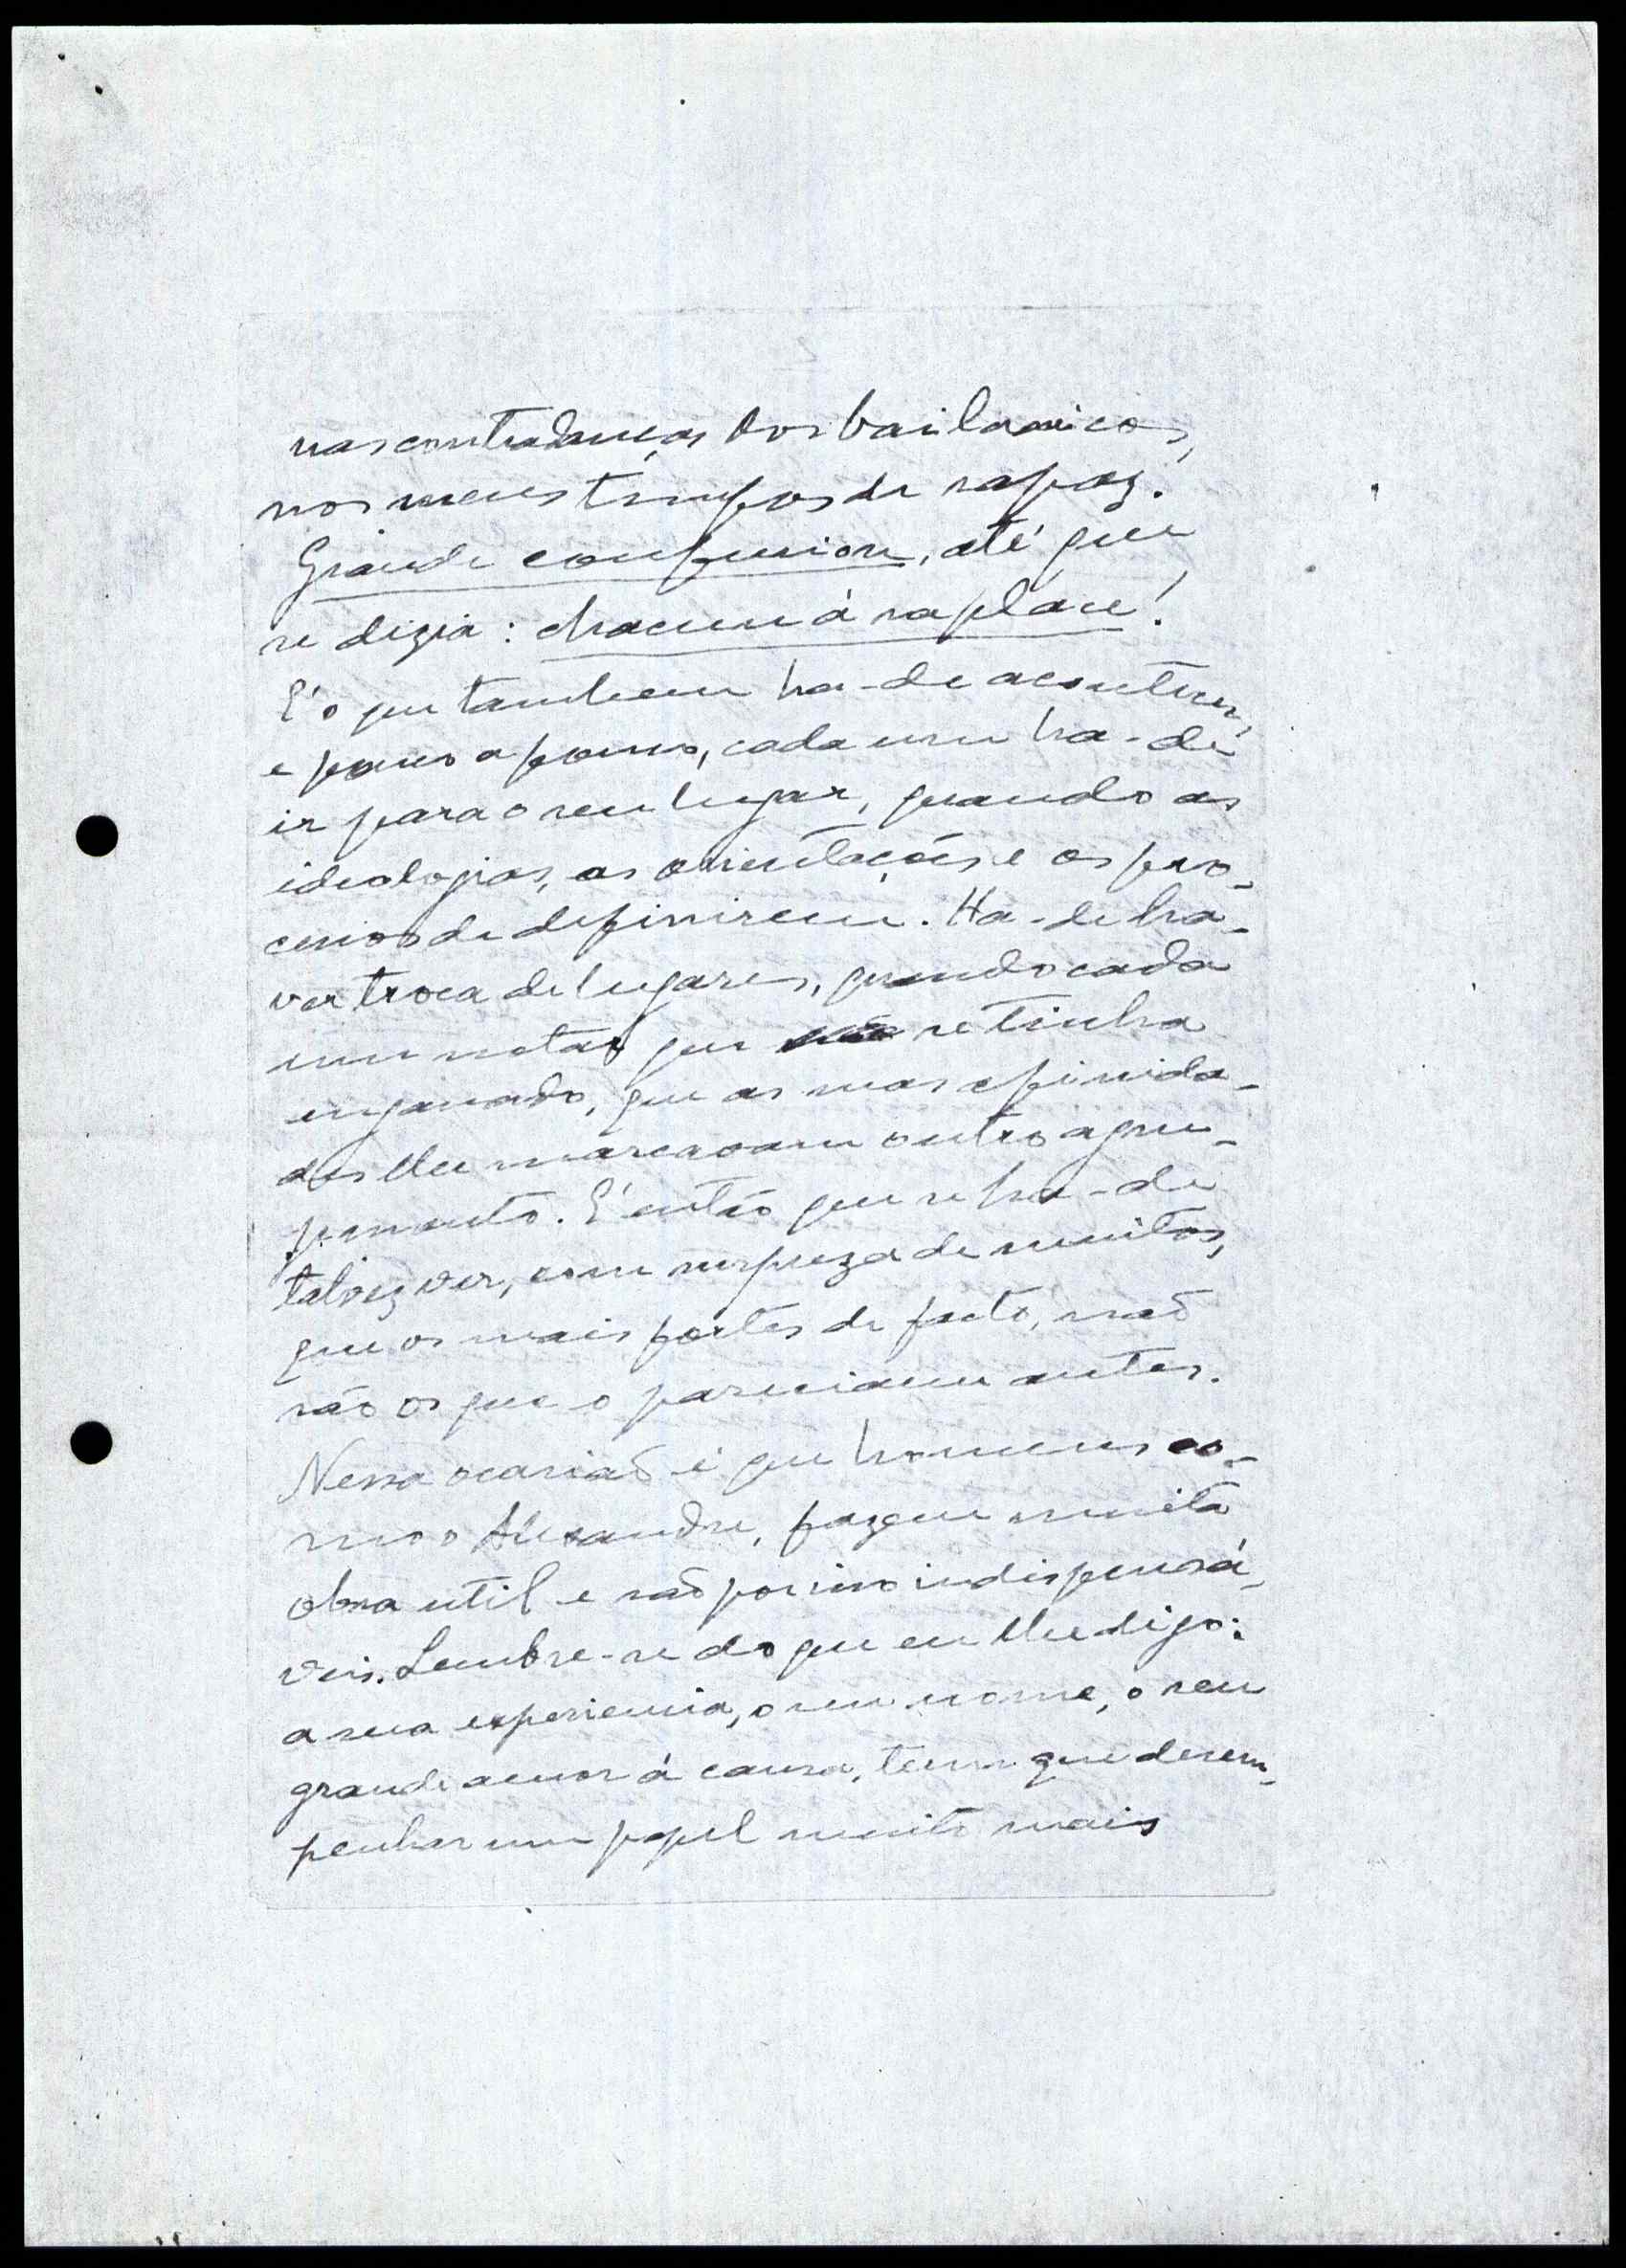 nas contradanças dos bailaricos,
nos meus tempos de rapaz.
Grande confusion, até que
se dizia: chacun á sa place!
E' o que tambem ha-de acontecer,
e pouco a pouco, cada um ha-de
ir para o seu lugar, quando as
ideologias, as orientações e os pro-
cessos de definirem. Ha-de ha-
ver troca de lugares, quando cada
um notar que se tinha
enganado, que as suas afinida-
des lhe marcavam outro agru-
pamento. E' então que se ha-de
talvez ver, com surpreza de muitos,
que os mais fortes de facto, não
são os que o pareciam antes.
Nessa ocasião é que homens co-
mo o Alexandre, fazem muita
obra util e são por isso indispensá-
veis. Lembre-se do que eu lhe digo:
a sua experiencia, o seu nome, o seu
grande amor á causa, tem que desem-
penhar um papel muito mais